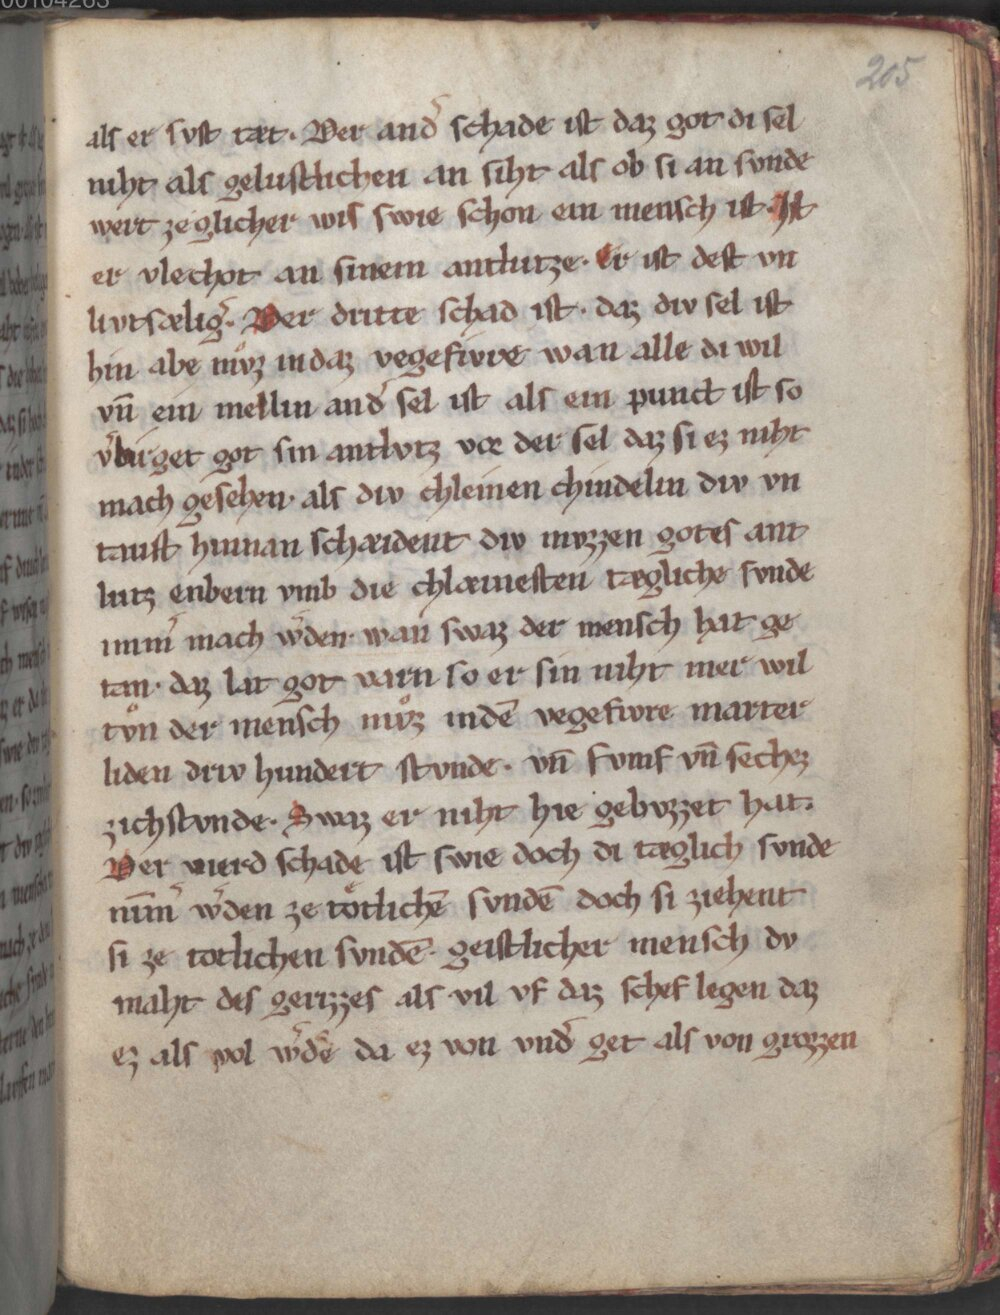 00104263
205
als er svst tæt. Der and̾ schade ist daz got di sel
niht als gelustlichen an siht als ob si an svnde
wert ze glicher wis swie schon ein mensch ist. Ist
er vlechot an sinem antlutze. Er ist dest vn
livtsælig̾. Der dritte schad ist. daz div sel ist
hin abe mvͦz in daz vegefivre wan alle di wil
vn̄ ein meilin and̾ sel ist als ein punct ist so
v̾birget got sin antlvtz vor der sel daz si ez niht
mach gesehen. als div chleinen chindelin div vn
taust hinnan schæident div mvzzen gotes ant
lutz enbern vmb die chlæinesten tægliche svnde
imm̾ mach w̾den. wan swaz der mensch hat ge
tan. daz lat got varn so er sin niht mer wil
tvͦn der mensch mvͦz in dē vegefivre marter
liden driv hundert stvnde. vn̄ fvnif vn̄ sechez
zichstvnde. Swaz er niht hie gebvzzet hat.
Der vierd schade ist swie doch di tæglich svnde
nim̄̾ w̾den ze toͤtlichē svndē doch si ziehent
si ze totlichen svndē. geistlicher mensch dv
maht des gerizzes als vil vf daz schef legen daz
ez als wol w̾de da ez von vnd̾ get als von grozzen